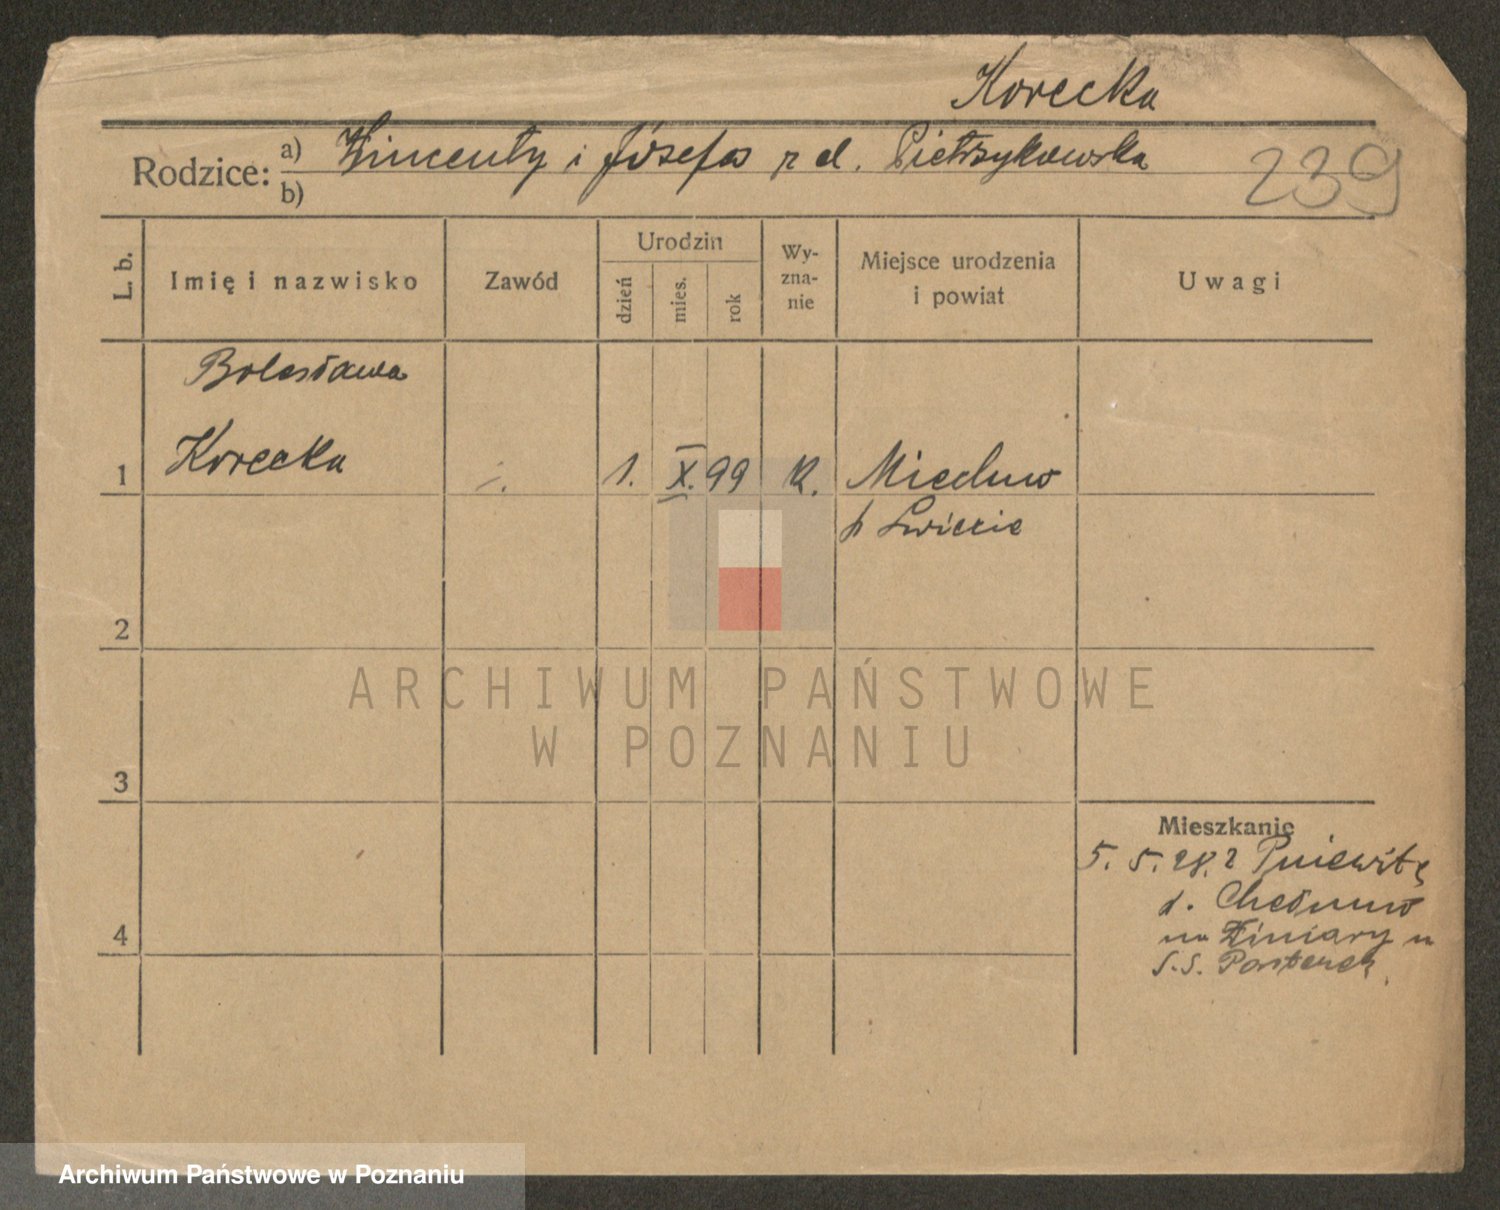 Korecka
Rodzice: a) Wincenty i Józefa z d. Pietrzykowska
b)
239
L. b.
Imię i nazwisko
Zawód
Urodzin
dzień
mies.
rok
Wy-
zna-
nie
Miejsce urodzenia
i powiat
Uwagi
Bolesława
1 Korecka 1. X. 99 K.
p
2
3
4
Mieszkanie
5. 5. 28. z Pniewitę
d. Chełmno
na Winiary u
S.S.
ARCHIWUM PAŃSTWOWE
W POZNANIU
Archiwum Państwowe w Poznaniu